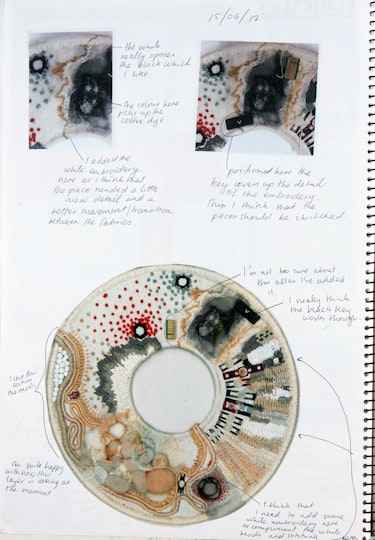 15/06/17
the white
really opposes
the black which
I like
The colour here
picks up the
coffee dye.
I added the
white embroidery
here as I think that
the piece needed a little
more detail and a
better movement/transition
between the fabrics.
positioned here the
key covers up the detail
of the embroidery
thus I think that the
pieces should be switched.
I'm not too sure about
this after I've added
it.
I really think
the black key
works though.
I love this
section
the most
I'm quite happy
with how this
layer is looking at
the moment
I think that
I need to add some
white embroidery here
to compliment the white
beads and stitching
here.